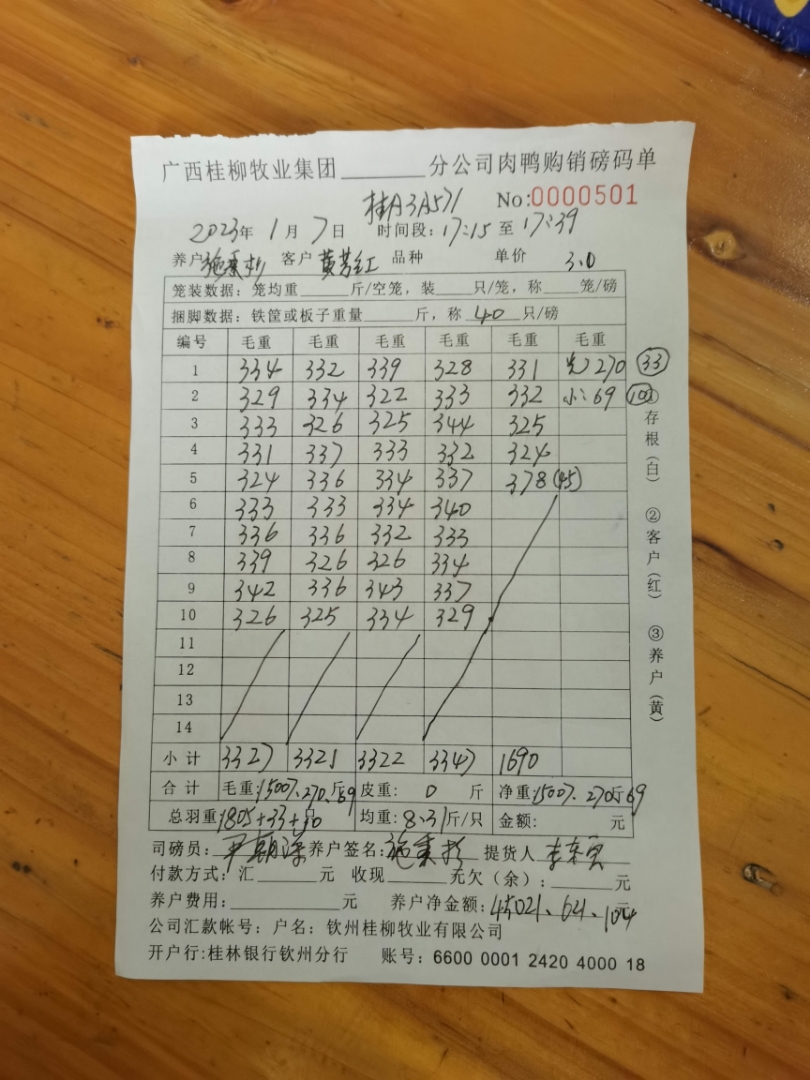 广西桂柳牧业集团________分公司肉鸭购销磅码单
桂A3A571 No:0000501
2023年 1月 7日 时间段:17:15至17:39
养户 客户 黄芳红 品种 单价 3.0
笼装数据:笼均重______斤/空笼,装____只/笼,称____笼/磅
捆脚数据:铁筐或板子重量______斤,称 40 只/磅
编号 毛重 毛重 毛重 毛重 毛重 毛重
1 334 332 339 328 331 270 (33)
2 329 334 322 333 332 小:69
3 333 326 325 344 325
4 331 337 333 332 324
5 324 336 334 337 378 (45)
6 333 333 334 340
7 336 336 332 333
8 339 326 326 334
9 342 336 343 337
10 326 325 334 329
11
12
13
14
小计 3327 3321 3322 3347 1690
合计 毛重:15007、270、斤69 皮重: 0 斤 净重:15007、270斤69
总羽重:1805+33+ 只 均重:8.31斤/只 金额: 元
司磅员: 养户签名: 提货人
付款方式:汇______元 收现______元欠(余):______元
养户费用:__________元 养户净金额:45021、 元
公司汇款帐号:户名:钦州桂柳牧业有限公司
开户行:桂林银行钦州分行 账号:6600 0001 2420 4000 18
①存根(白) ②客户(红) ③养户(黄)